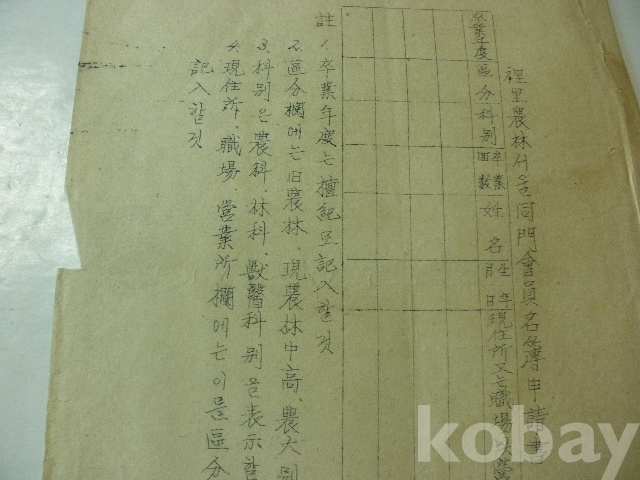 裡里農林서울同門會員名簿申請書
卒業年度
區分
科別
卒業回数
姓名
生年月日
現住所又는職場 営
註 1. 卒業年度는檀紀로記入할것
2. 區分欄에는旧農林、現農林中高、農大別
3. 科別은農科、林科、獸醫科別을表示할
4. 現住所、職場、営業所欄에는이를區分
記入할것
kobay